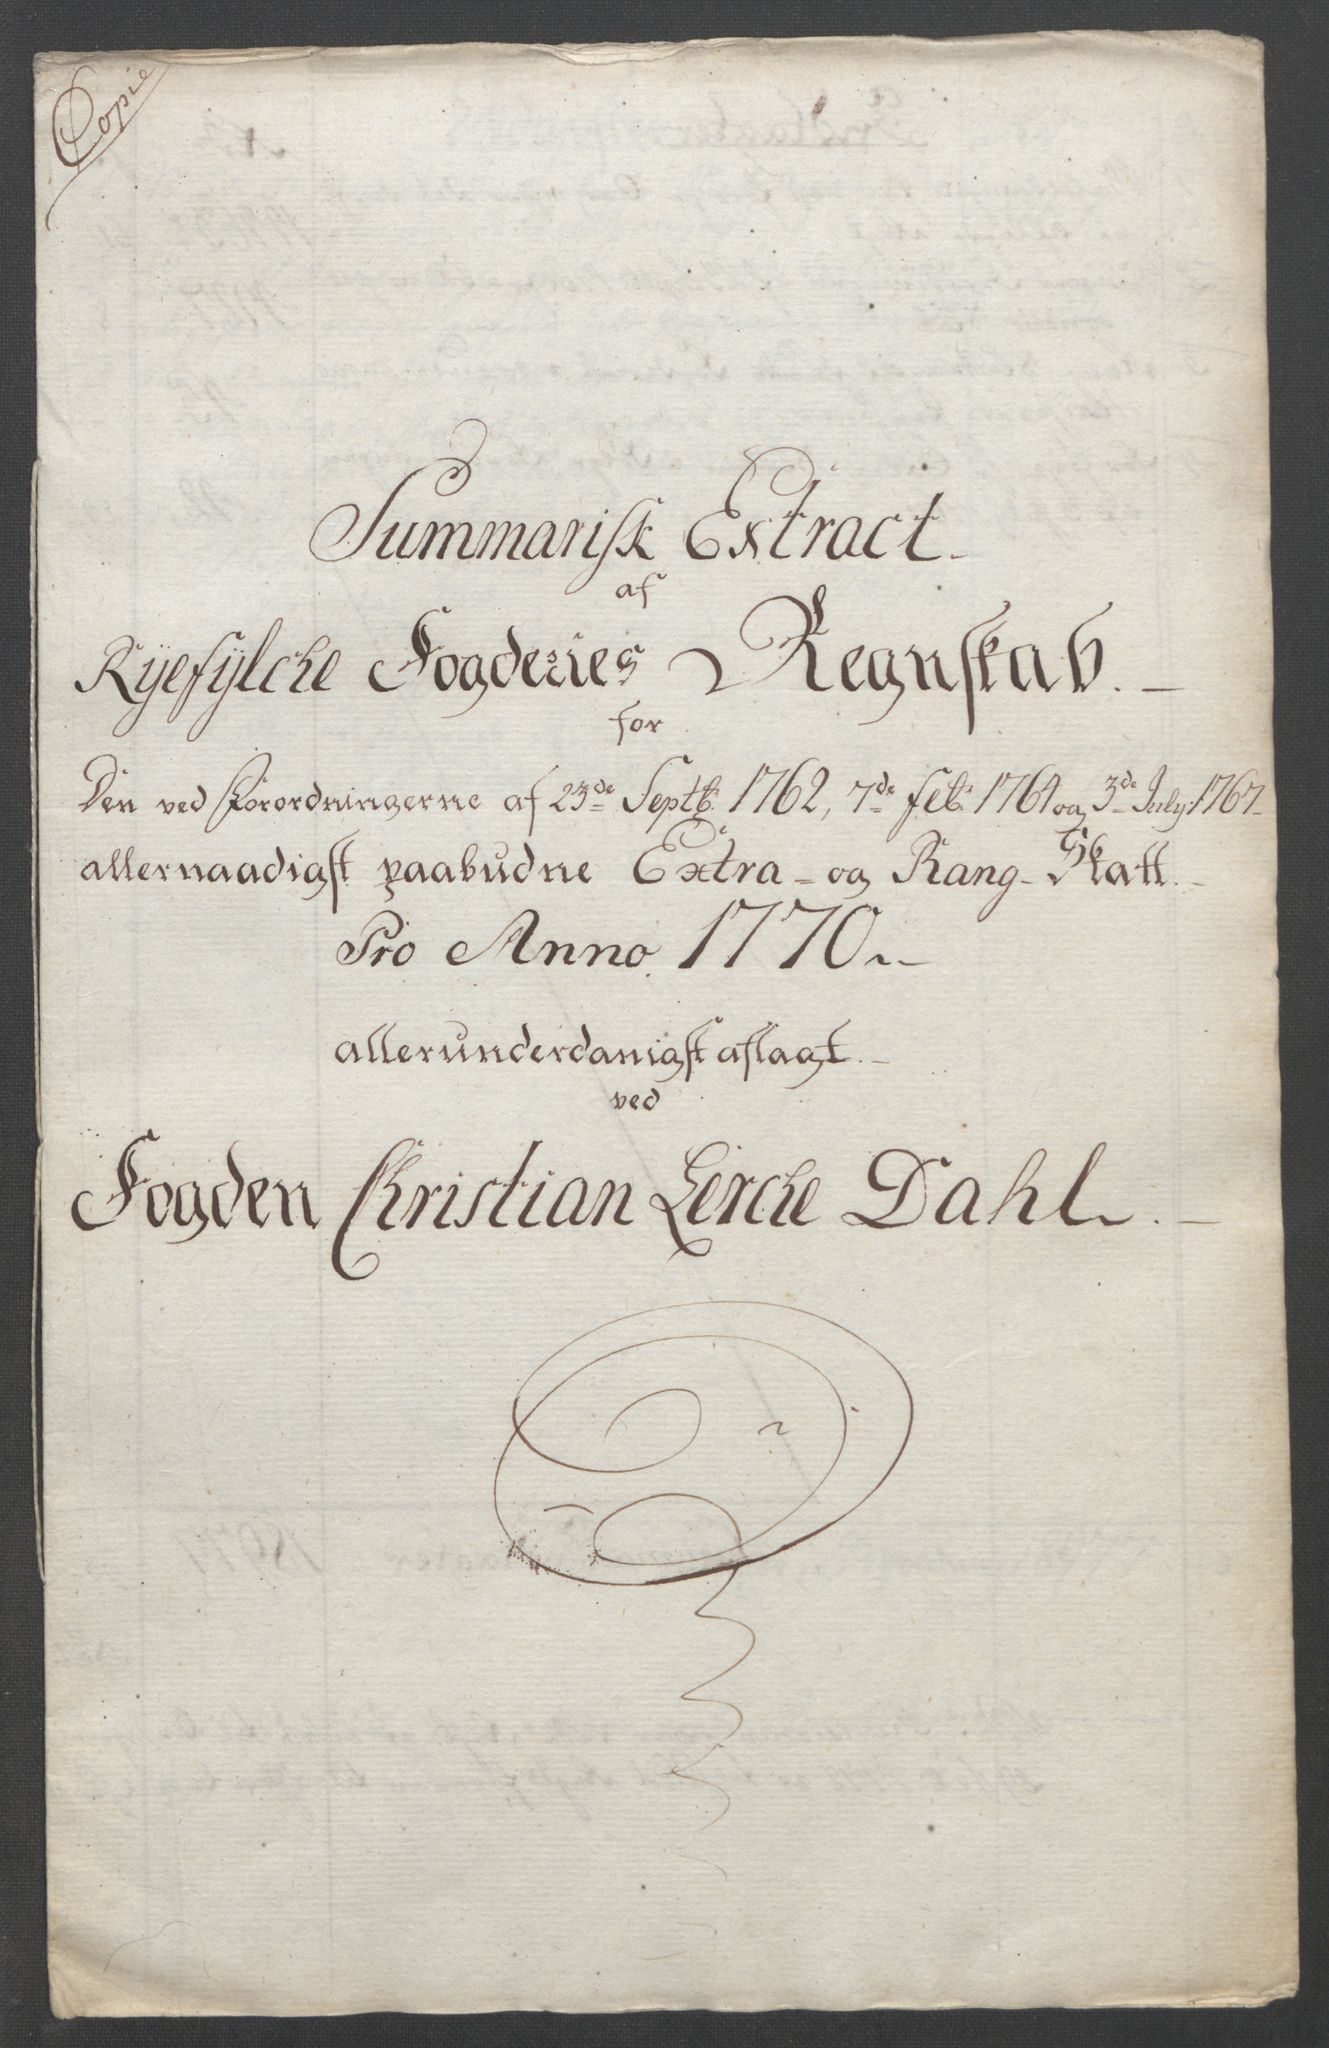 Copie
Summarisk Extract
af
Ryefylche Fogderies Regnskab.
for
Den ved Forordningerne af 23de Septb: 1762, 7de feb: 1764 og 3de July 1767
allernaadigst paabudne Extra- og Rang-Skatt.
Pro Anno 1770
allerunderdanigst aflagt.
ved
Fogden Christian Lerche Dahl.